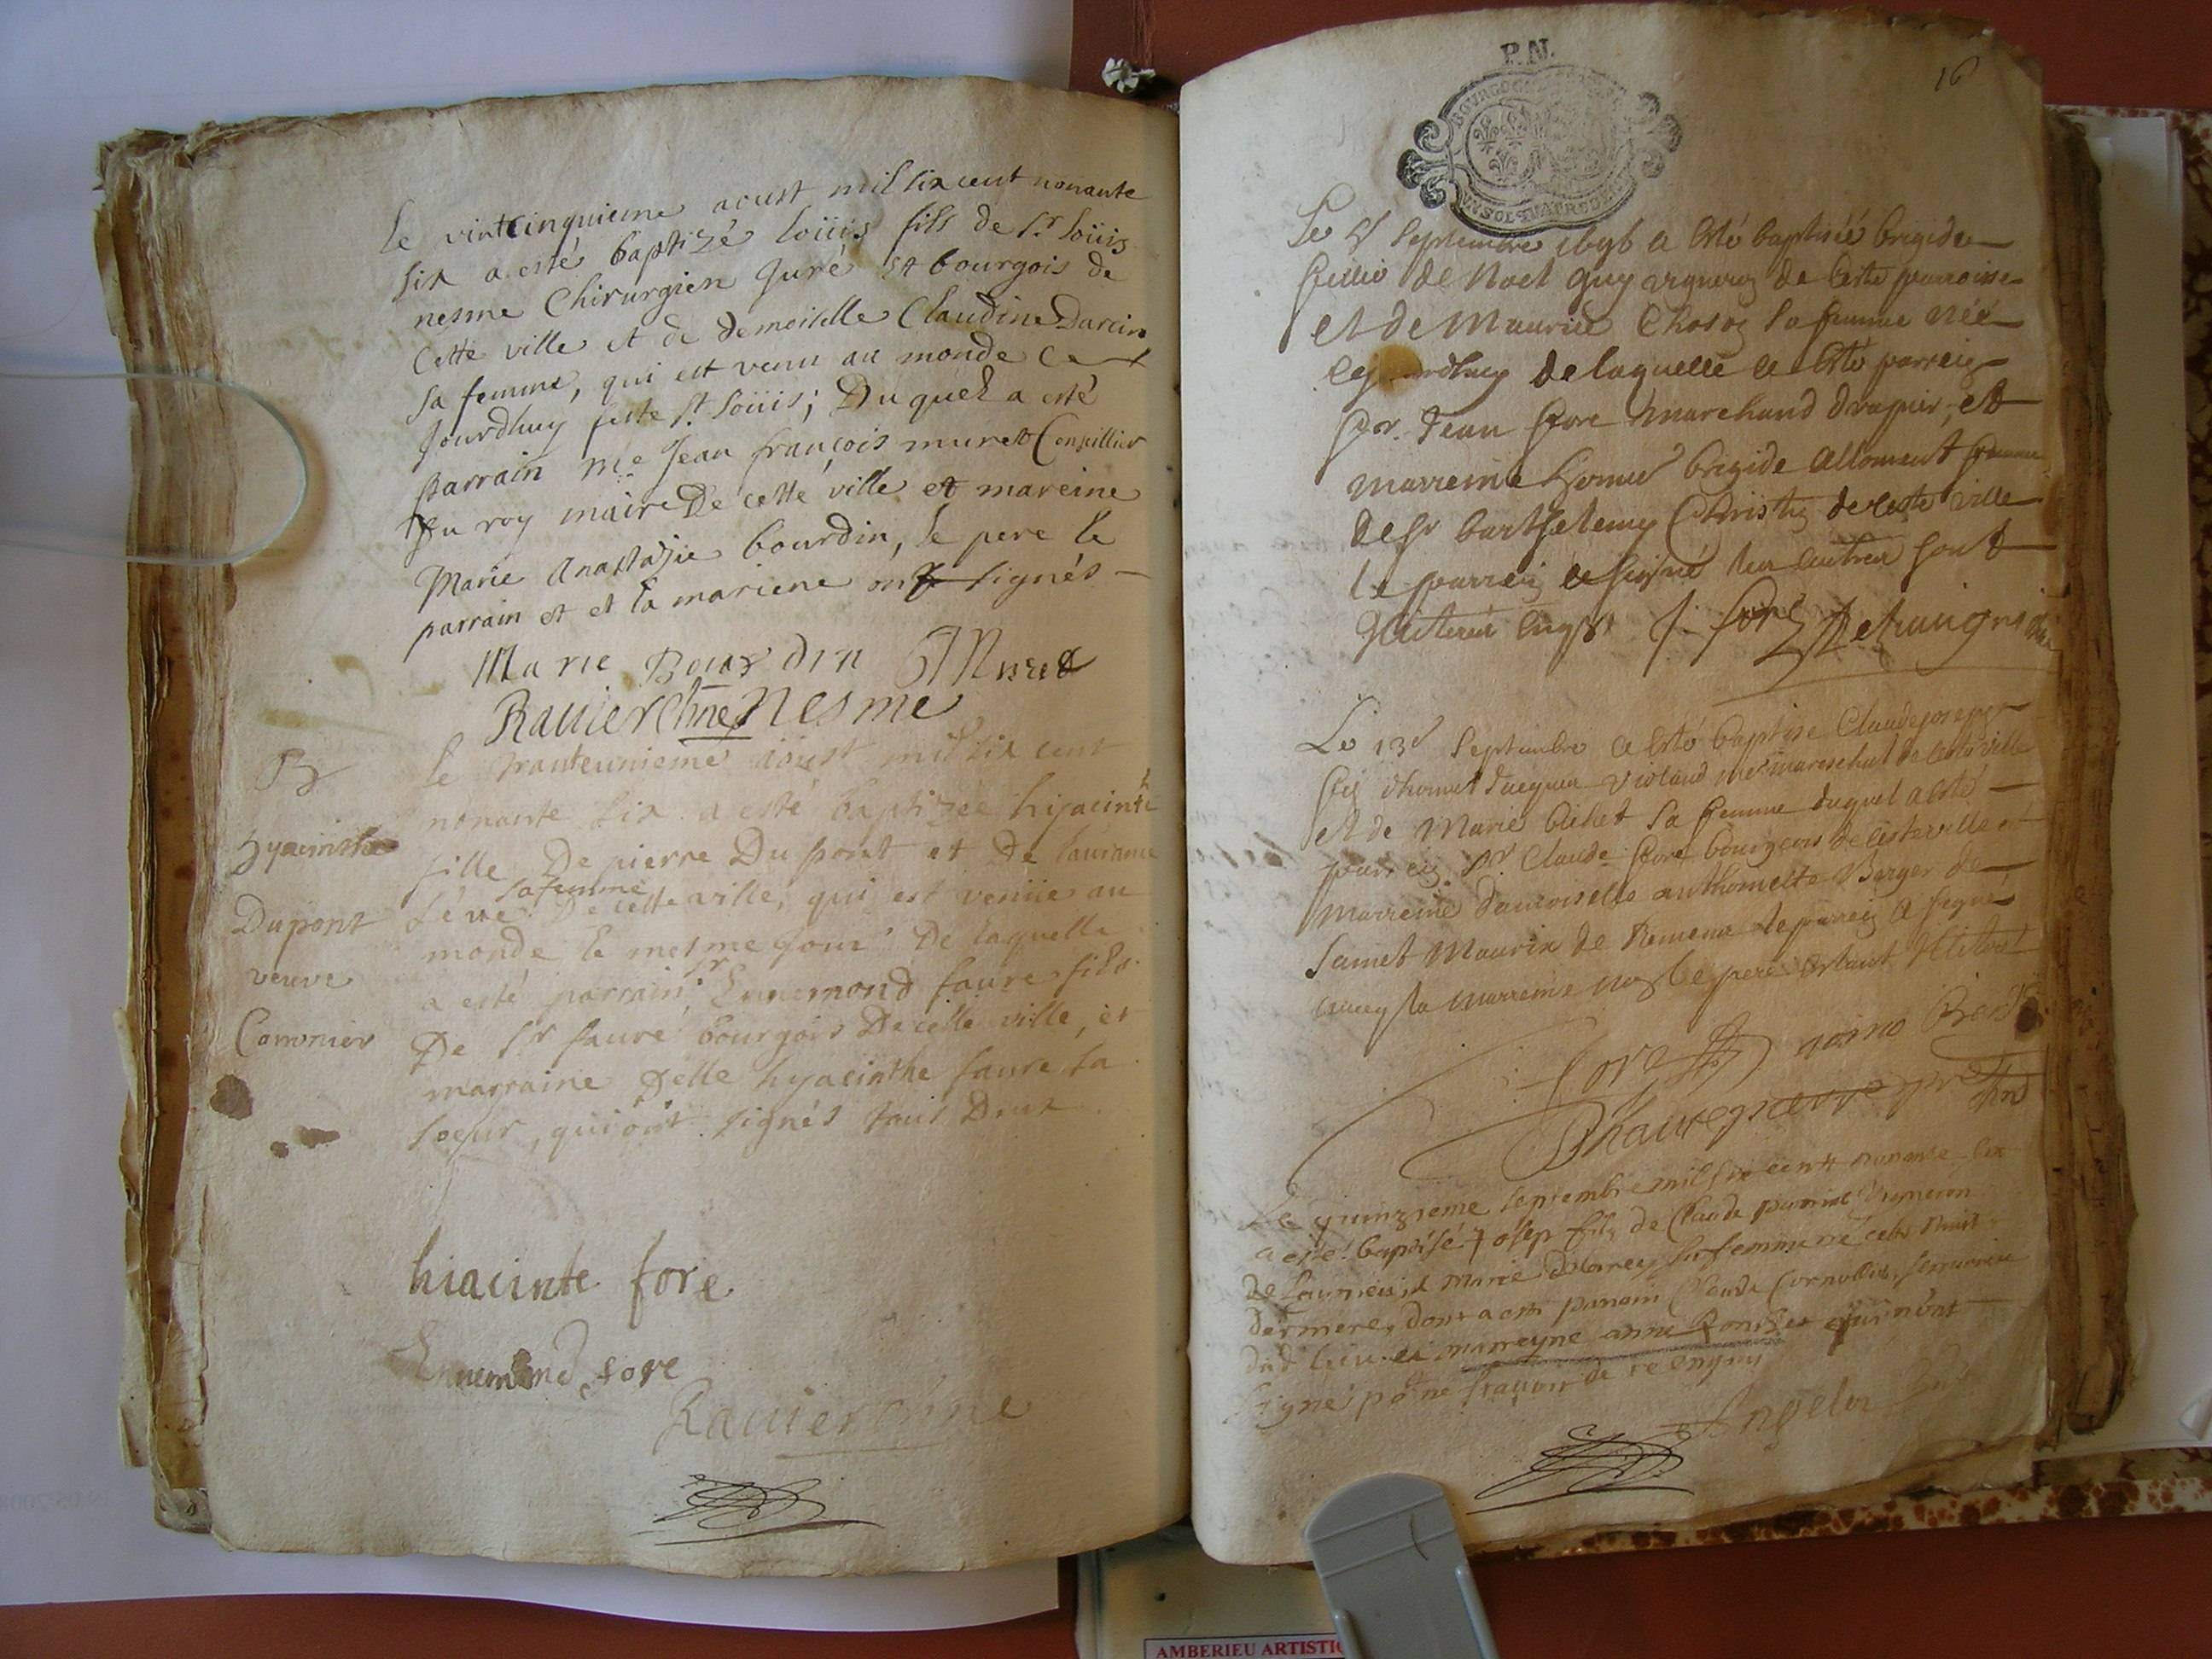 le vintcinquieme aoust mil six cent nonante
six a esté baptizé loüis fils de Sr loüis
nesme Chirurgien Juré et bourgois de
Cette ville et de demoiselle Claudine Darcin
sa femme, qui est venu au monde ce
Jourdhuy feste St loüis; Duquel a esté
parrain Me Jean françois muret Conseillier
Du roy maire De cette ville et mareine
Marie Anastasie bourdin, le pere le
parrain et et la mariene ont signés
Marie Bourdin Muret
Ravier Nesme
le tranteunieme aoust mil six cent
nonante six a esté baptizée hijacinte
fille De pierre Du pont et De
sa femme
De cette ville, qui est venüe au
monde le mesme Jour De laquelle
a esté parrain Sr Ennemond faure fils
De Sr faure bourgois De cette ville, et
marraine Delle hyacinthe faure sa
soeur, qui ont signés tous Deux
hyacinthe
Dupont
veuve
hiacinte fore
Ennemond fore
Ravier
P.N.
16
BOURGOGNE
UN SOL QUATRE DEN
Le 5 Septembre 1696 a esté baptisée brigide
fillie de Noel Guy vigneron de ceste parroisse
et de Maurise Choson sa femme née
delaquelle a esté parrein
Sr. Jean fore Marchand drapier, et
marreine brigide Alloment femme
de Sr barthelemy Christin de ceste ville
le parrein a signé les autres sont
illiterés enqs J. fore
Le 13e Septembre a esté baptise Claude joseph
fils dhonnet Jacques Violand me mareschal de ceste ville
et de Marie bichet sa femme duquel a esté
parrein Sr Claude fore bourgeois de ceste ville et
marreine damoiselle anthoinette Berger de
Sainct Maurix de Remens le parrein a signé
la marreine le pere estant illiteré
fore
Le quinzieme septembre mil six cent nonante six
a esté baptisé Josep fils de Claude
et marie sa femme né cette nuit
derniere, dont a esté parrain Claude
dud lieu et marreyne anne qui n'ont
signé pour ne sçavoir de ce enquis